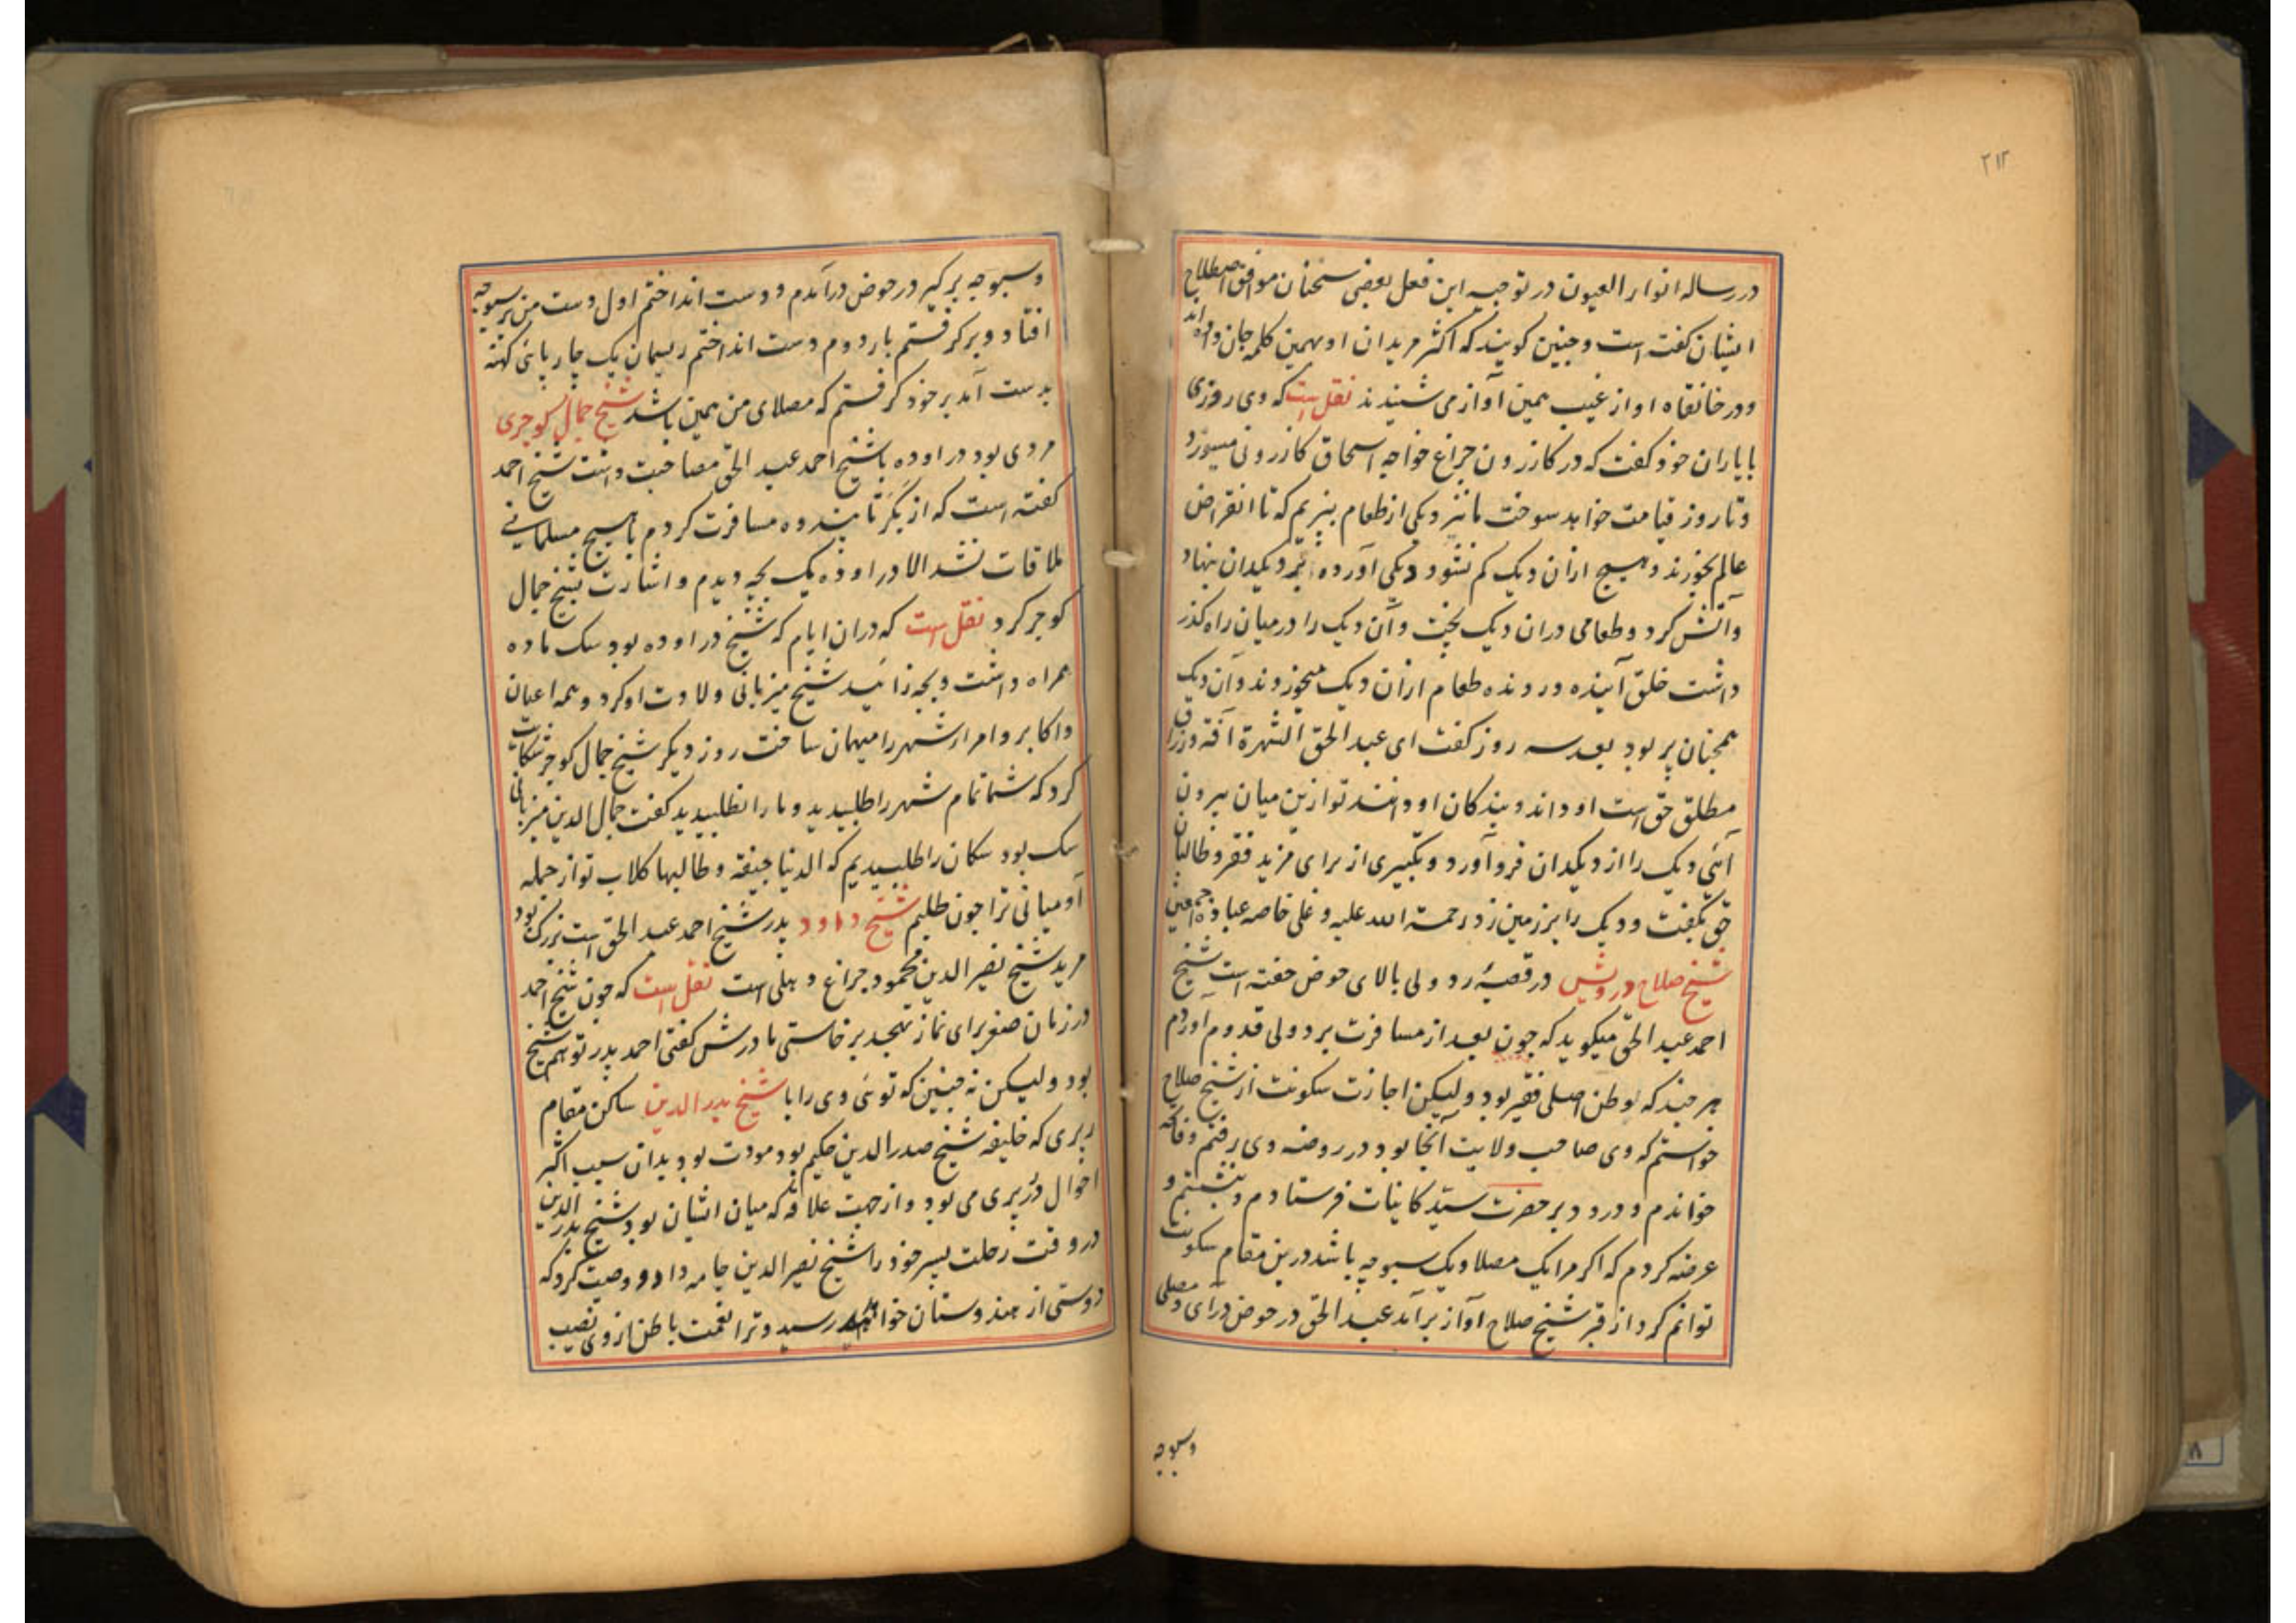 ۲۱۳
در رساله انوار العیون در توجیه این فعل بعضی سخنان موافق اصطلاح
ایشان کفته است و جنین کویند که اکثر مریدان او بهمین کلمه جان داده اند
و در خانقاه او از غیب همین آواز می شنیدند نقل است که وی روزی
با یاران خود کفت که در کازرون جراغ خواجه اسحاق کازرونی میسوزد
و تا روز قیامت خواهد سوخت ما نیز دیکی از طعام بپزیم که تا انقراض
عالم بخورند و هیچ ازان دیک کم نشود دیکی آورده بر دیکدان نهاد
و آتش کرد و طعامی دران دیک بخت و آن دیک را در میان راه کذر
داشت خلق آینده و رونده طعام ازان دیک میخوردند و آن دیک
همجنان پر بود بعد سه روز کفت ای عبد الحق الشهرة آفة و رزاق
مطلق حق است او داند و بندکان او دانند تو ازین میان بیرون
آئی دیک را از دیکدان فرو آورد و تکبیری از برای مزید فقر و طالبان
حق بکفت و دیک را بر زمین زد رحمة الله علیه و علی خاصه عباده اجمعین
شیخ صلاح درویش در قصبهٔ ردولی بالای حوض خفته است شیخ
احمد عبد الحق میکوید که جون بعد از مسافرت بردولی قدوم آوردم
هر جند که بوطن اصلی فقیر بود ولیکن اجازت سکونت از شیخ صلاح
خواستم که وی صاحب ولایت آنجا بود در روضه وی رفتم و فاتحه
خواندم و درود بر حضرت سید کاینات فرستادم و بنشستم و
عرضه کردم که اکر مرا یک مصلا و یک سبوجه باشد درین مقام سکونت
توانم کرد از قبر شیخ صلاح آواز برآمد عبد الحق در حوض درآی و مصلی
وسبوجه
و سبوجه بر کیر در حوض درآمدم و دست انداختم اول دست من بر سبوجه
افتاد و بر کرفتم بار دوم دست انداختم ریسمان یک چارپائی کهنه
بدست آمد بر خود کرفتم که مصلای من همین باشد شیخ جمال کوجری
مردی بود در اوده با شیخ احمد عبد الحق مصاحبت داشت شیخ احمد
کفته است که از بکر تا پندوه مسافرت کردم با هیچ مسلمانی
ملاقات نشد الا در اوده یک بچه دیدم و اشارت بشیخ جمال
کوجر کرد نقل است که دران ایام که شیخ در اوده بود سک ماده
همراه داشت و بچه زائید شیخ میزبانی ولادت او کرد و همه اعیان
و اکابر و امراء شهر را میهمان ساخت روز دیکر شیخ جمال کوجر شکایت
کرد که شما تمام شهر را طلبیدید و ما را نطلبیدید کفت جمال الدین میزبانی
سک بود سکان را طلبیدیم که الدنیا جیفة و طالبها کلاب تو از جمله
آدمیانی ترا جون طلبم شیخ داود پدر شیخ احمد عبد الحق است بزرک بود
مرید شیخ نصیر الدین محمود جراغ دهلی است نقل است که جون شیخ احمد
در زمان صغر برای نماز تهجد بر خاستی مادرش کفتی احمد پدر تو هم شیخ
بود ولیکن نه جنین که توئی وی را با شیخ بدر الدین ساکن مقام
ربری که خلیفه شیخ صدر الدین حکیم بود مودت بود بدان سبب اکثر
احوال در ربری می بود و از جهت علاقه که میان ایشان بود شیخ بدر الدین
در وقت رحلت پسر خود را شیخ نصیر الدین جامه داد و وصیت کرد که
دوستی از هندوستان خواهد رسید و ترا نعمت باطن از وی نصیب